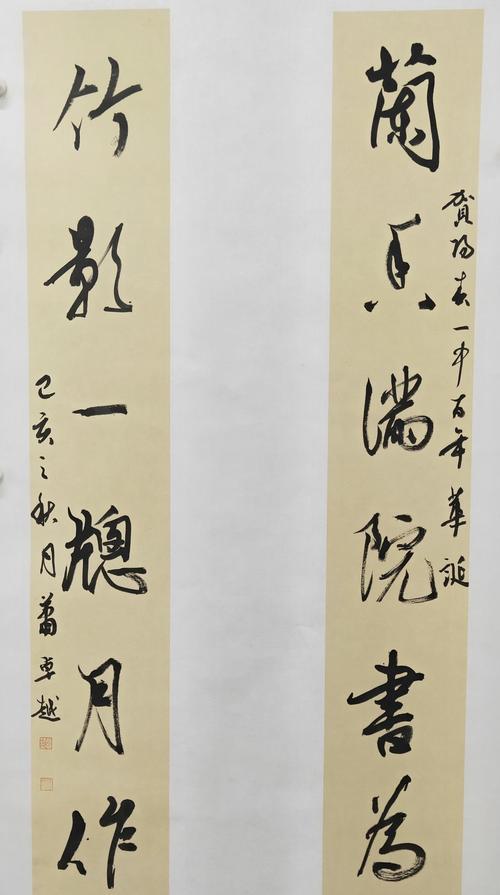 蘭香滿院書為
賀陽春一中百年華誕
竹影一牕月作
己亥之秋月蕭卓越